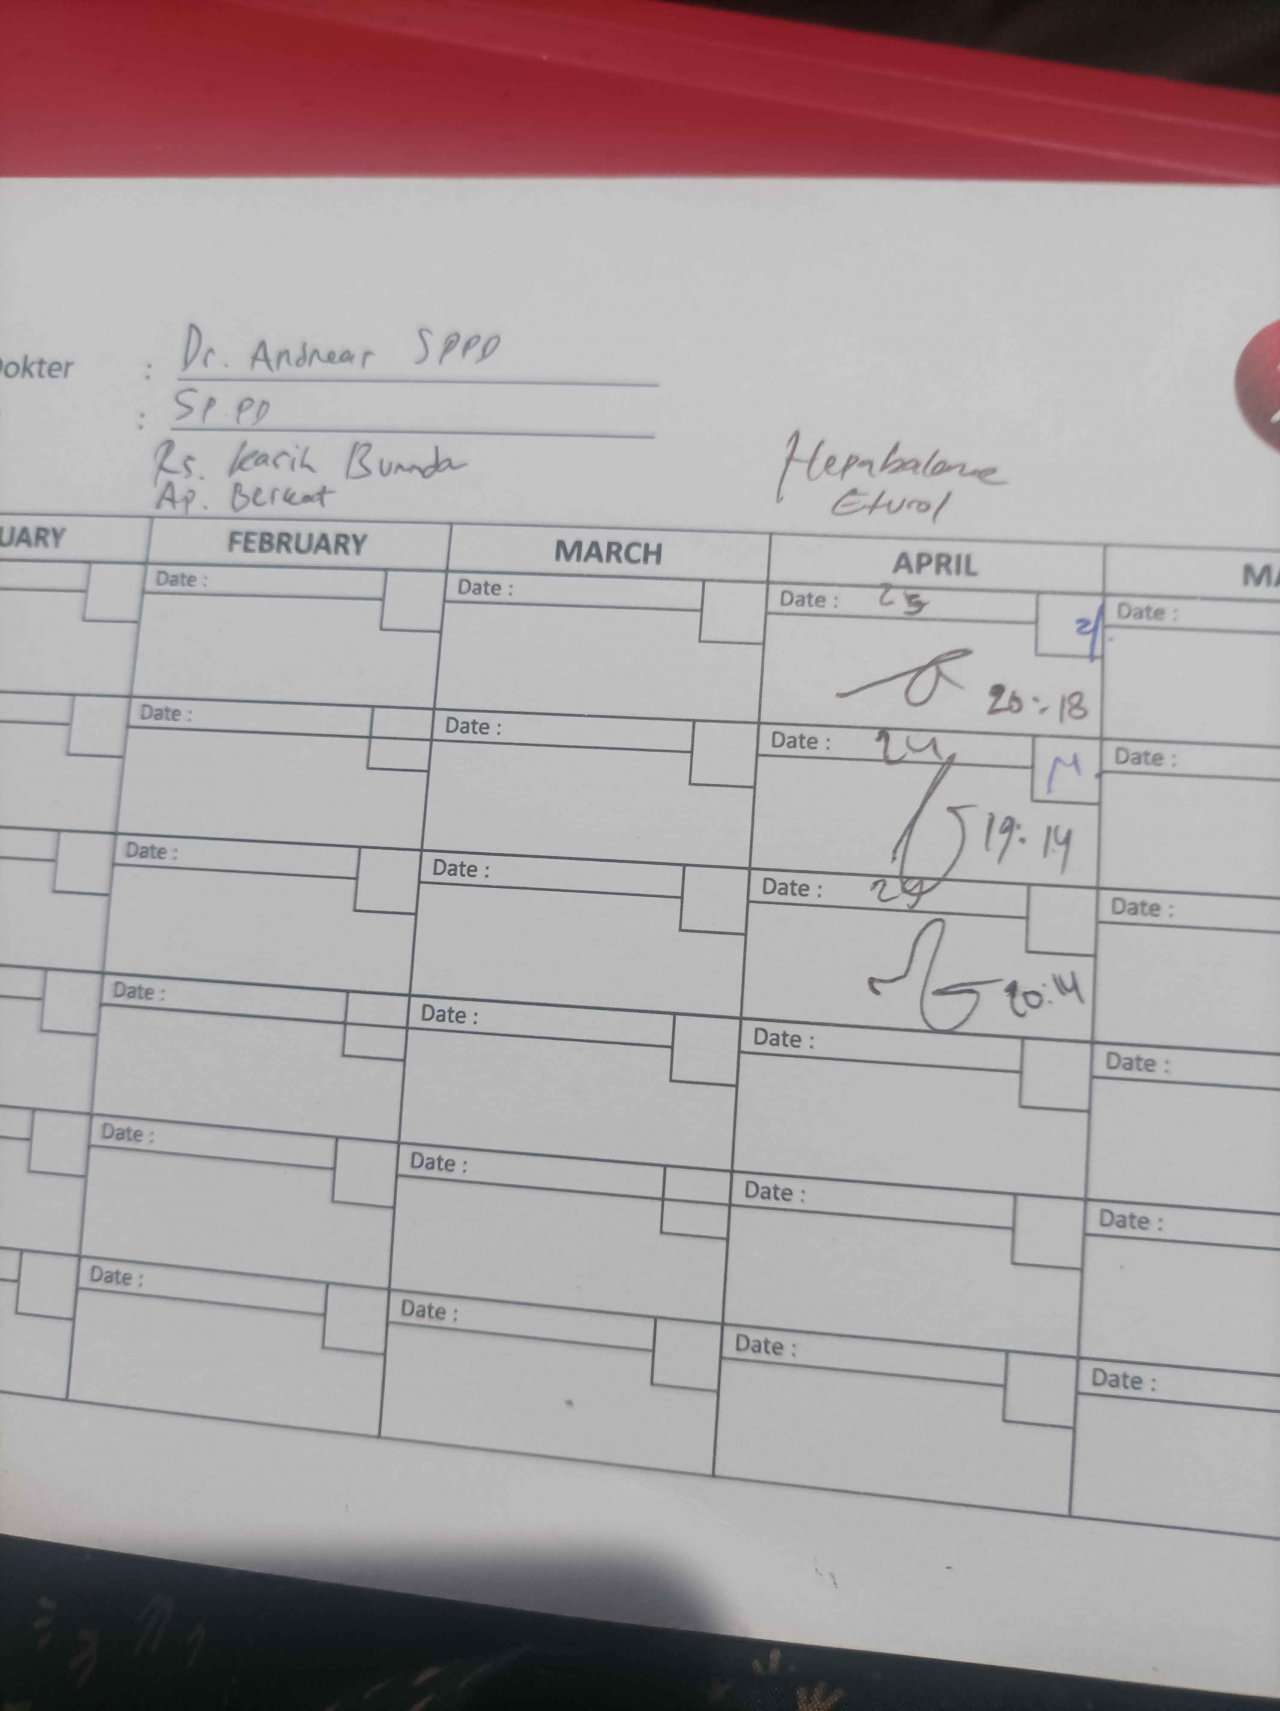 Dokter : Dr. Andrear SPPD
: SP.PD
Rs. Karih Bunda
Ap. Berkat
Hepabalance
Eturol
UARY FEBRUARY MARCH APRIL MA
Date : Date : Date : 23 Date :
20:18
Date : Date : Date : 24 Date :
19:14
Date : Date : Date : 29 Date :
20:14
Date : Date : Date : Date :
Date : Date : Date : Date :
Date : Date : Date : Date :